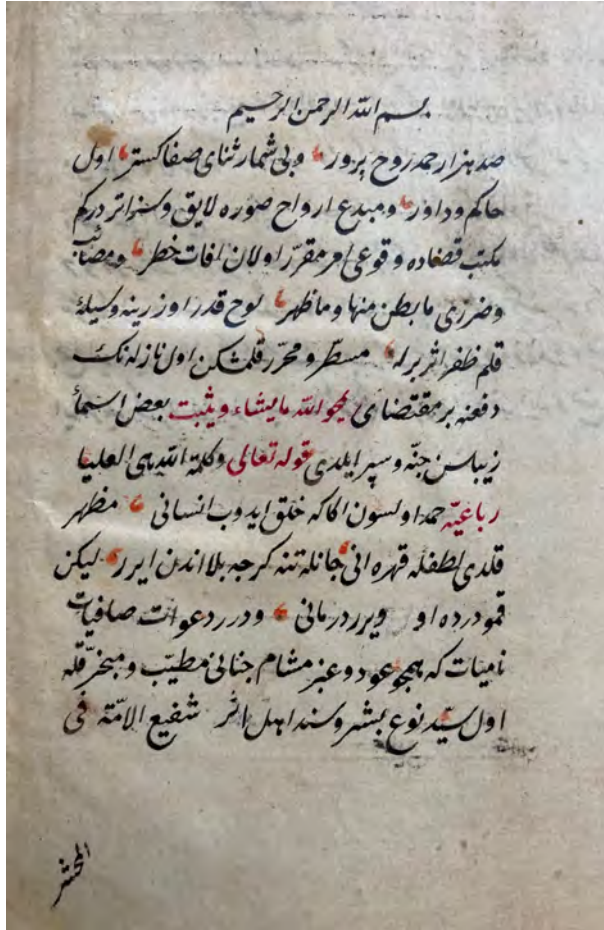 بسم الله الرحمن الرحيم
صد هزار حمد روح پرور وبی شمار ثنای صفا کستر اول
حاکم وداور ومبدع ارواح صوره لایق وسزاتر درکم
مکتب قضاده وقوعی امر مقرر اولان افات خطر ومصائب
وضرری مابطن منها وماظهر لوح قدر اوزرینه وسیلۀ
قلم ظفر اثر برله مسطّر ومحرّر قلمشکن اول نازله نک
دفعنه بر مقتضای یمحو الله مایشاء ویثبت بعض اسماء
زیباسن جنّه وسپر ایلدی قوله تعالی وکلمة الله هی العلیا
رباعیّه حمد اولسون اکا که خلق ایدوب انسانی مظهر
قلدی لطفله قهره انی جانله تنه کرچه بلا اندن ایرر لیکن
قمو درده او ویرر درمانی ودرر دعوات صافیات
نامیات که همچو عود وعنبر مشام جنانی مطیّب ومبخّر قله
اول سیّد نوع بشر وسند اهل اثر شفیع الامّة فی
المحشر